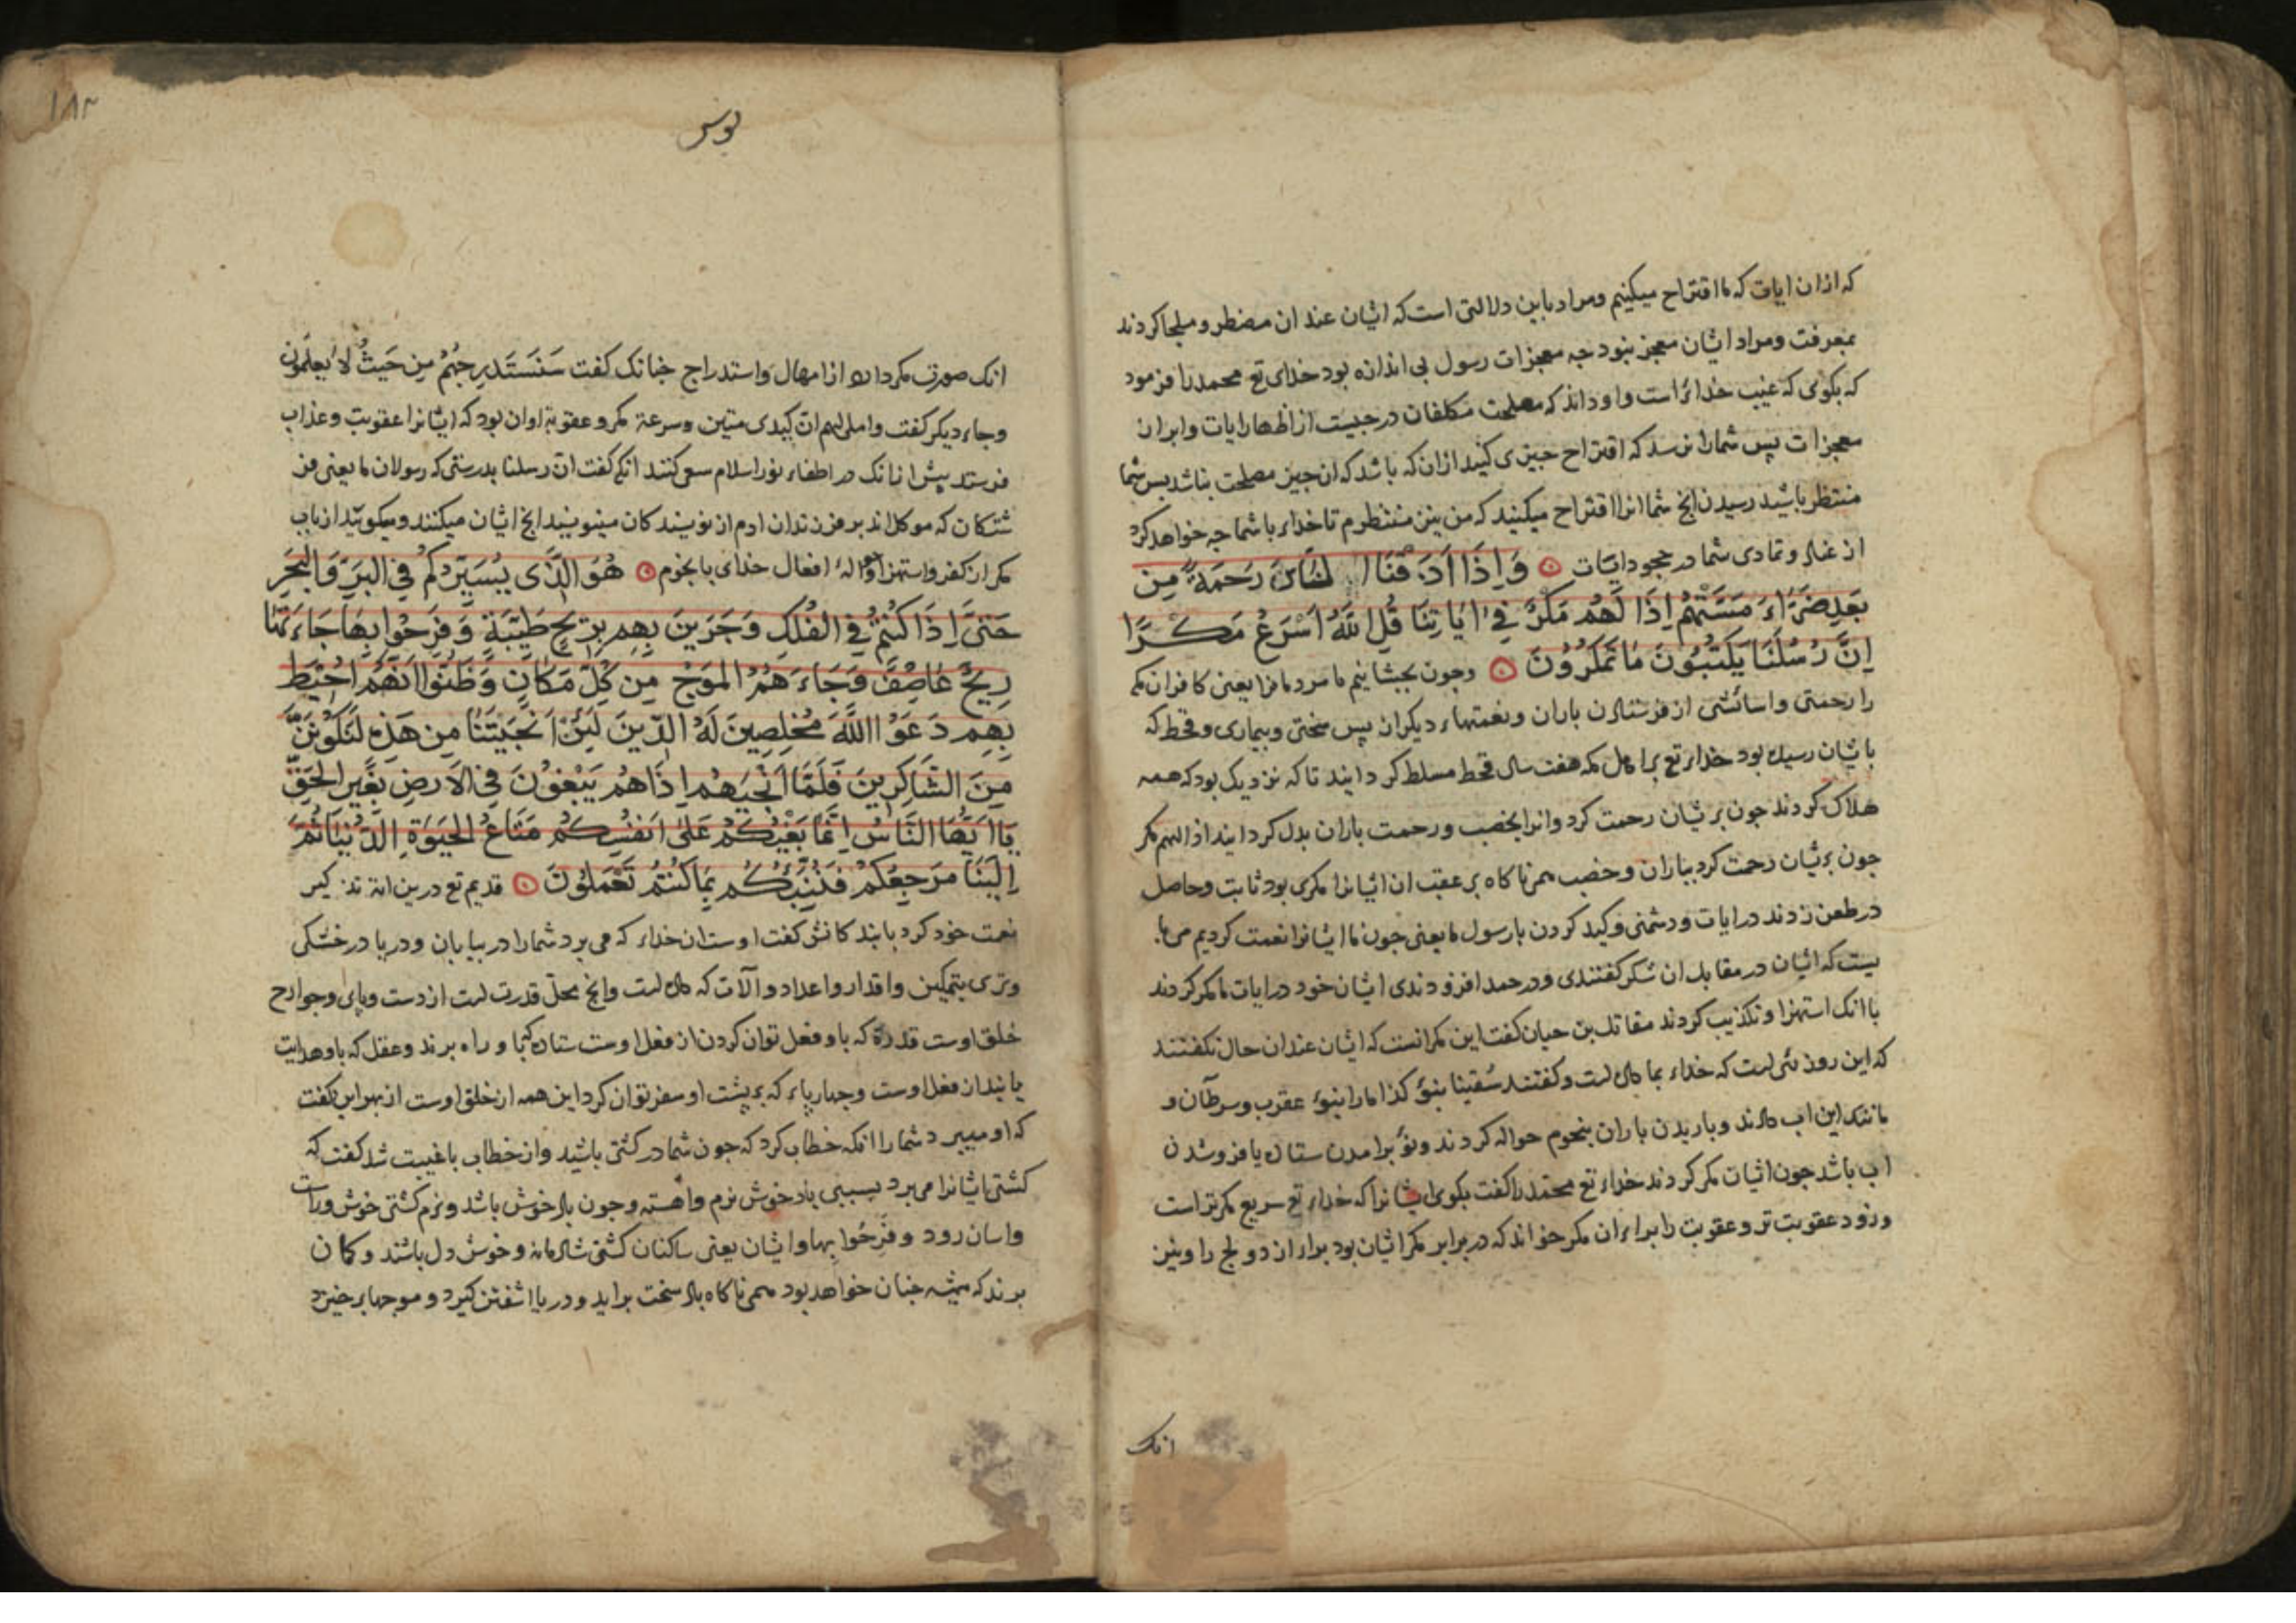 که ازان ایات که ما اقتراح میکنیم ومراد باین دلالتی است که ایشان عند ان مضطر و ملجا کردند
بمعرفت ومراد ایشان معجز نبود جه معجزات رسول بی اندازه بود خدای تع محمد را فرمود
که بکوی که غیب خدایراست واو داند که مصلحت مکلفان در جیست از اظهار ایات وابران
معجزات پس شمارا نرسد که اقتراح جیزی کنید ازان که باشد که ان جیز مصلحت نباشد بس شما
منتظر باشید رسیدن انج شما انرا اقتراح میکنید که من نیز منتظرم تا خداء با شما جه خواهد کرد
از عناد وتمادی شما در جحود ایات وَاِذَا اَذَقْنَا النَّاسَ رَحْمَةً مِن
بَعْدِ ضَرَّاءَ مَسَّتْهُمْ اِذَا لَهُمْ مَكْرٌ فِي اٰيَاتِنَا قُلِ اللهُ اَسْرَعُ مَكْرًا
اِنَّ رُسُلَنَا يَكْتُبُونَ مَا تَمْكُرُوُنَ وجون بجشانیم ما مردمانرا یعنی کافران مکه
را رحمتی واسائشی از فرستادن باران ونعمتهاء دیکر از پس سختی وبیماری وقحط که
بایشان رسیده بود خداء تع بر اهل مکه هفت سال قحط مسلط کردانید تا که نزدیک بود که همه
هلاک کردند جون بریشان رحمت کرد وانرا بخصب ورحمت باران بدل کردانید اذا لهم مکر
جون بریشان رحمت کرد بباران وخصب همی ناکاه بر عقب ان ایشانرا مکری بود ثابت وحاصل
در طعن زدند در ایات ودشمنی وکید کردن با رسول ما یعنی جون ما ایشانرا نعمت کردیم می با
یست که ایشان در مقابل ان شکر کفتندی ودر حمد افزودندی ایشان خود در ایات ما مکر کردند
با انک استهزا وتکذیب کردند مقاتل بن حیان کفت این مکر انست که ایشان عند ان حال نکفتند
که این روزئی است که خداء بما داده است وکفتند سُقینا بنؤ کذا مارا بنؤ عقرب وسرطان و
مانند این اب دادند وباریدن باران بنجوم حواله کردند ونؤ برامدن ستاره یا فروشدن
اب باشد جون ایشان مکر کردند خداء تع محمد را کفت بکوی ایشانرا که خداء تع سریع مکر تراست
وزود عقوبت تر وعقوبت را برابر ان مکر خواند که در برابر مکر ایشان بود براء ازدواج را ونیز
انک
یونس
۱۸۳
انک صورت مکر دارد از امهال واستدراج جنانک کفت سَنَسْتَدْرِجُهُمْ مِن حَيْثُ لَا يَعْلَمُونَ
وجاء دیکر کفت واملی لهم ان کیدی متین وسرعة مکر وعقوبة اوان بود که ایشانرا عقوبت وعذاب
فرستد بیش ازانک در اطفاء نور اسلام سعی کنند انکه کفت ان رسلنا بدرستی که رسولان ما یعنی فر
شتکان که موکل اند بر فرزندان ادم از نویسندکان مینویسند انج ایشان میکنند ومیکویند از باب
مکر از کفر واستهزا وحوالهٔ افعال خدای با نجوم هُوَ الَّذِى يُسَيِّرُكُمْ فِى الْبَرِّ وَالْبَحْرِ
حَتَّى اِذَا كُنْتُمْ فِى الْفُلْكِ وَجَرَيْنَ بِهِمْ بِرِيحٍ طَيِّبَةٍ وَفَرِحُوا بِهَا جَاءَتْهَا
رِيحٌ عَاصِفٌ وَجَاءَهُمُ الْمَوْجُ مِن كُلِّ مَكَانٍ وَظَنُّوا اَنَّهُمْ اُحِيْطَ
بِهِمْ دَعَوُا اللَّهَ مُخْلِصِينَ لَهُ الدِّينَ لَئِنْ اَنْجَيْتَنَا مِن هَذِهِ لَنَكُوْنَنَّ
مِنَ الشَّاكِرِينَ فَلَمَّا اَنْجَيٰهُمْ اِذَا هُمْ يَبْغُوْنَ فِى الْاَرْضِ بِغَيْرِ الْحَقِّ
يَا اَيُّهَا النَّاسُ اِنَّمَا بَغْيُكُمْ عَلٰى اَنْفُسِكُمْ مَتَاعُ الْحَيٰوةِ الدُّنْيَا ثُمَّ
اِلَيْنَا مَرْجِعُكُمْ فَنُنَبِّئُكُمْ بِمَا كُنْتُمْ تَعْمَلُوُنَ قدیم تع درین ایة تذکیر
نعمت خود کرد با بندکانش کفت اوست ان خداء که می برد شمارا در بیابان ودریا در خشکی
وتری بتمکین واقدار واعداد والآت که داده است وانج محل قدرت است از دست وپای وجوارح
خلق اوست قدرة که باو فعل توان کردن از فعل اوست ستارکان کبجا وراه برند وعقل که باو هدایت
یابند از فعل اوست وجهارپاء که بر پشت او سفر توان کرد این همه از خلق اوست از بهر این کفت
که او میبرد شمارا انکه خطاب کرد که جون شما در کشتی باشید واز خطاب با غیبت شد کفت که
کشتی ایشانرا می برد بسببی باد خوش نرم واهسته وجون باد خوش باشد ونرم کشتی خوش وراست
واسان رود وفَرِحُوا بها وایشان یعنی ساکنان کشتی شادمانه وخوش دل باشند وکمان
برند که همیشه جنان خواهد بود همی ناکاه باد سخت براید ودریا اشفتن کیرد وموجها برخیزد